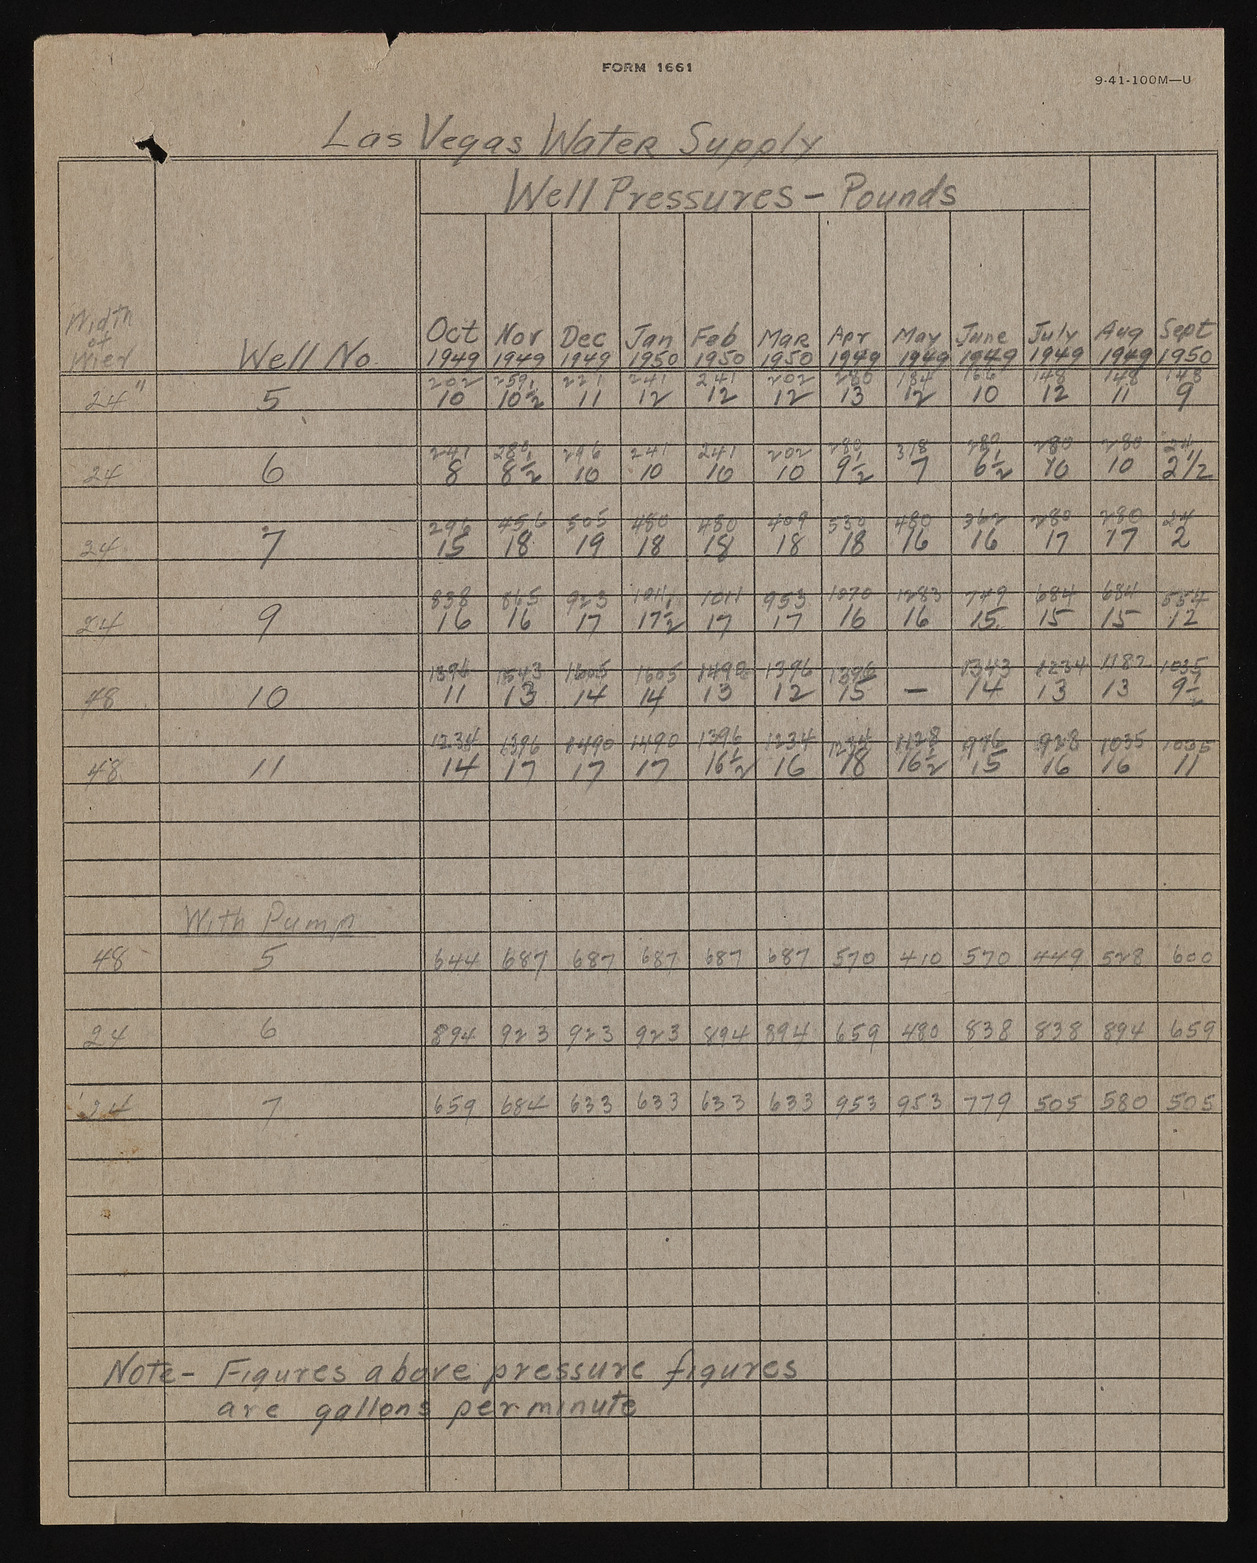 FORM 1661
9-41-100M—U
Las Vegas Water Supply
Well Pressures - Pounds
Width of Wier Well No. Oct 1949 Nov 1949 Dec 1949 Jan 1950 Feb 1950 Mar 1950 Apr 1949 May 1949 June 1949 July 1949 Aug 1949 Sept 1950
202 259 221 241 241 202 280 184 166 148 148 148
24" 5 10 10½ 11 12 12 12 13 12 10 12 11 9
241 280 296 241 241 202 280 318 280 280 280 24
24 6 8 8½ 10 10 10 10 9½ 7 6½ 10 10 2½
296 456 505 480 480 409 530 480 362 280 280 24
24 7 15 18 19 18 18 18 18 16 16 17 17 2
838 865 923 1011 1011 953 1070 1283 749 684 684 554
24 9 16 16 17 17½ 17 17 16 16 15 15 15 12
1396 1543 1605 1605 1490 1396 1396 1343 1234 1182 1035
48 10 11 13 14 14 13 12 15 — 14 13 13 9½
1234 1396 1490 1490 1396 1234 1234 1128 976 928 1035 1035
48 11 14 17 17 17 16½ 16 18 16½ 15 16 16 11
With Pump
48 5 644 687 687 687 687 687 570 410 570 449 528 600
24 6 894 923 923 923 894 894 659 480 838 838 894 659
24 7 659 684 633 633 633 633 953 953 779 505 580 505
Note- Figures above pressure figures
are gallons per minute